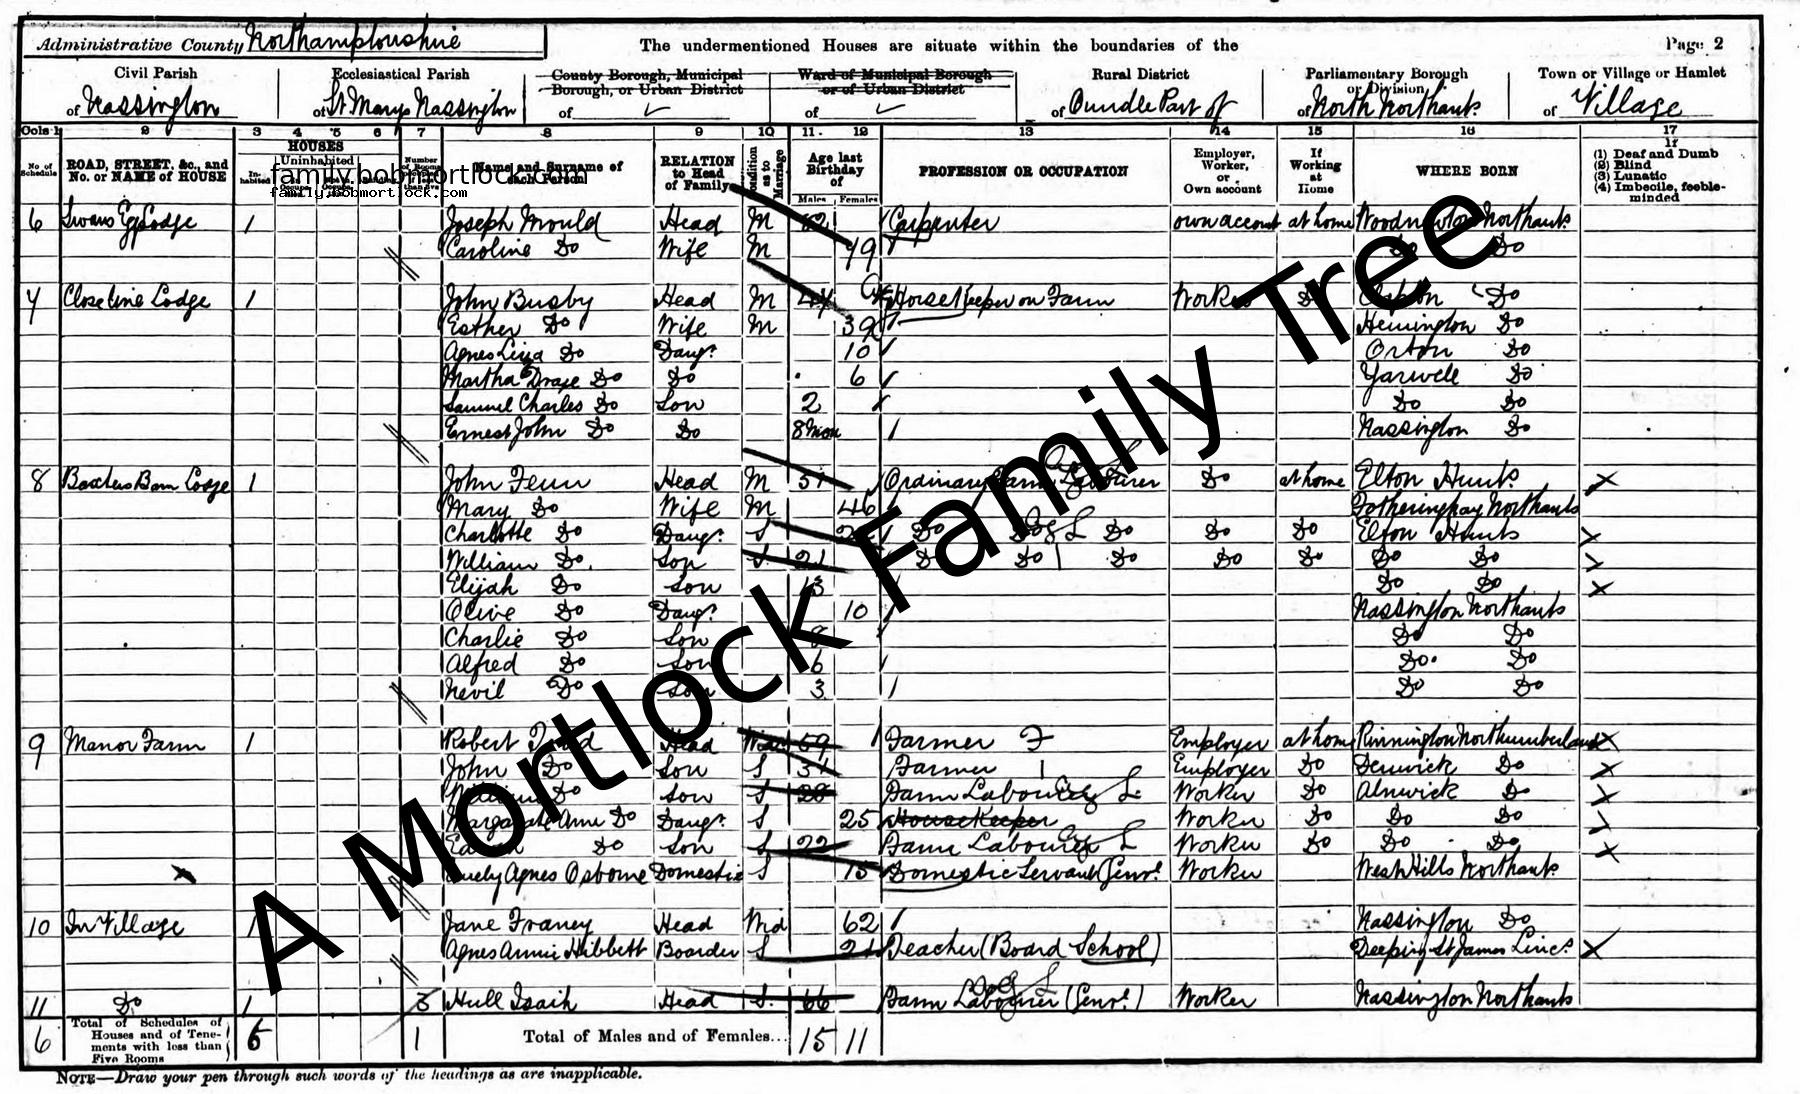 Administrative County Northamptonshire The undermentioned Houses are situate within the boundaries of the Page 2
Civil Parish Ecclesiastical Parish County Borough, Municipal Borough, or Urban District Ward of Municipal Borough or of Urban District Rural District Parliamentary Borough or Division Town or Village or Hamlet
of Nassington of St Mary Nassington of ✓ of ✓ of Oundle Part of of North Northants of Village
Cols 1 2 3 4 5 6 7 8 9 10 11 12 13 14 15 16 17
No. of Schedule ROAD, STREET, &c., and No. or NAME of HOUSE HOUSES Inhabited Uninhabited Name and Surname of each Person RELATION to Head of Family Condition as to Marriage Age last Birthday of Males Females PROFESSION OR OCCUPATION Employer, Worker, or Own account If Working at Home WHERE BORN If (1) Deaf and Dumb (2) Blind (3) Lunatic (4) Imbecile, feeble-minded
family.bobmortlock.com
family.bobmortlock.com
6 Swans Egg Lodge 1 Joseph Mould Head M 52 Carpenter own account at home Woodnewton Northants
Caroline Do Wife M 49 Do Do
7 Closeline Lodge 1 John Busby Head M 44 Horse Keeper on Farm Worker Do Do
Esther Do Wife M 39 Hemington Do
Agnes Liza Do Daugr 10 Orton Do
Martha Do Do 6 Yarwell Do
Samuel Charles Do Son 2 Do Do
Ernest John Do Do 8 Mon Nassington Do
8 Baxters Barn Lodge 1 John Fenn Head M 51 Ordinary Farm Labourer Do at home Elton Hunts
Mary Do Wife M 46 Fotheringhay Northants
Charlotte Do Daugr S Do Do Do Do Do Elton Hunts
William Do Son S 21 Do Do Do Do Do Do Do
Elijah Do Son 13 Do Do
Olive Do Daugr 10 Nassington Northants
Charlie Do Son 8 Do Do
Alfred Do Son 6 Do Do
Nevil Do Son 3 Do Do
9 Manor Farm 1 Robert Head 59 Farmer F Employer at home Northumberland
John Do Son S 31 Farmer Employer Do Denwick Do
William Do Son S 28 Farm Labourer Worker Do Alnwick Do
Margarate Ann Do Daugr S 25 Housekeeper Worker Do Do Do
Do Son S 22 Farm Labourer Worker Do Do Do
Agnes Osborne Domestic S 15 Domestic Servant (Genrl) Worker Northants
10 In Village 1 Jane Franey Head Wid 62 Nassington Do
Agnes Annie Hibbett Boarder S 21 Teacher (Board School) Deeping St James Lincs
11 Do 1 5 Hull Isaih Head S 66 Farm Labourer (Genrl) Worker Nassington Northants
6 Total of Schedules of Houses and of Tenements with less than Five Rooms 6 1 Total of Males and of Females... 15 11
NOTE—Draw your pen through such words of the headings as are inapplicable.
A Mortlock Family Tree